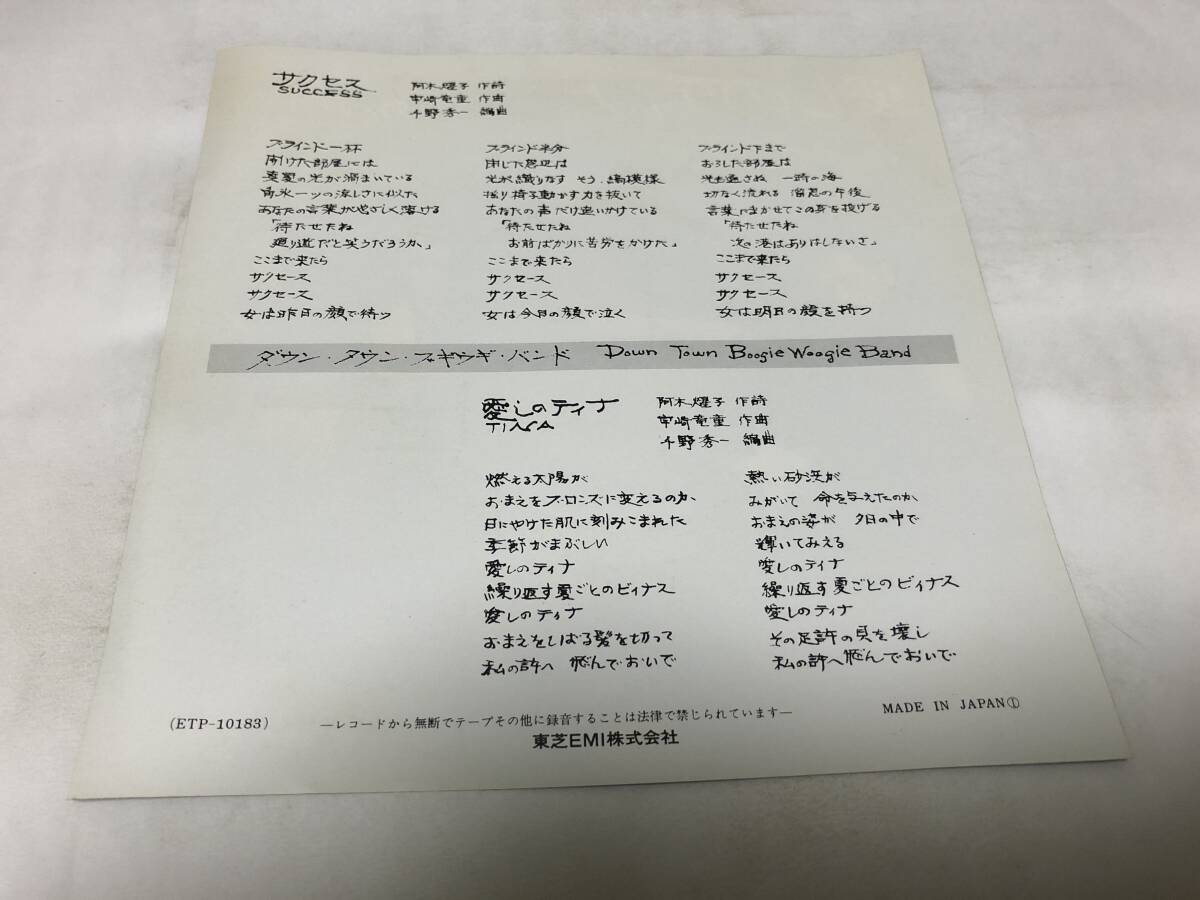 サクセス
SUCCESS
阿木燿子 作詩
宇崎竜童 作曲
千野秀一 編曲
ブラインド一杯
開けた部屋には
真夏の光が溢まいている
角氷一ツの涼しさに似た
あなたの言葉がやさしく溶ける
「待たせたね
廻り道だと笑うだろうか」
ここまで来たら
サクセース
サクセース
女は昨日の顔で待つ
ブラインド半分
閉じた窓辺は
光が織りなす そう 縞模様
揺り椅子動かす力を抜いて
あなたの声だけ追いかけている
「待たせたね
お前ばかりに苦労をかけた」
ここまで来たら
サクセース
サクセース
女は今日の顔で泣く
ブラインド下まで
おろした部屋は
光も通さぬ 一時の海
切なく流れる 溜息の午後
言葉にまかせてこの身を投げる
「待たせたね
次の港はありはしないさ」
ここまで来たら
サクセース
サクセース
女は明日の顔を持つ
ダウン・タウン・ブギウギ・バンド Down Town Boogie Woogie Band
愛しのティナ
TINA
阿木燿子 作詩
宇崎竜童 作曲
千野秀一 編曲
燃える太陽が
おまえをブロンズに変えるのか
日にやけた肌に刻みこまれた
季節がまぶしい
愛しのティナ
繰り返す夏ごとのビィナス
愛しのティナ
おまえをしばる髪を切って
私の許へ 飛んでおいで
熱い砂浜が
みがいて 命を与えたのか
おまえの姿が 夕日の中で
輝いてみえる
愛しのティナ
繰り返す夏ごとのビィナス
愛しのティナ
その足許の貝を壊し
私の許へ飛んでおいで
(ETP-10183)
―レコードから無断でテープその他に録音することは法律で禁じられています―
MADE IN JAPAN①
東芝EMI株式会社